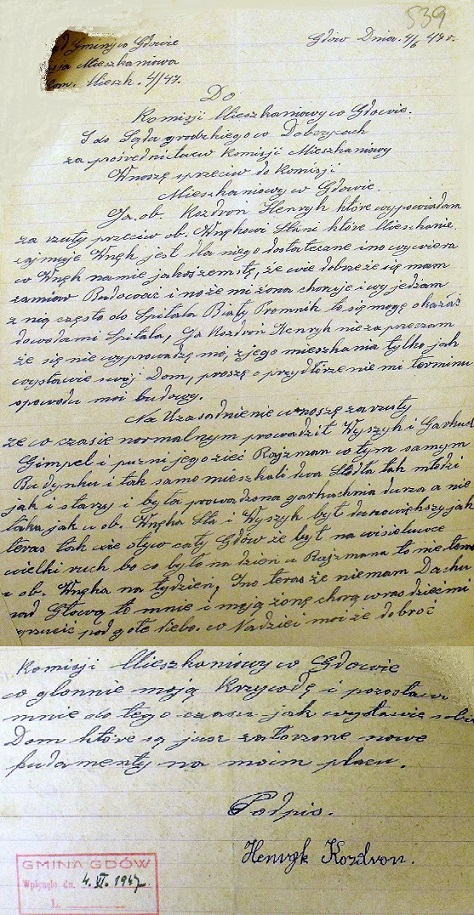 539
Gminy w Gdowie Gdów Dnia. 4/6 47 r.
Mieszkaniowa
Mieszk. 4/47.
Do
Komisji Mieszkaniowy w Gdowie.
I do Sądu grodzkiego w Dobczycach
za pośrednictwem Komisji Mieszkaniowy
Wnoszę sprzeciw do Komisji
Mieszkaniowy w Gdowie.
Ja. ob. Kozdroń Henryk które wypowiadam
za rzuty przeciw ob. Wnękowi Stani które Mieszkanie
zajmuje Wnęk jest dla niego dostateczne ino wywiera
co Wnęk na mie jakoś zemstę, że wie dobrze że się mam
zamiar Budować i może mi żona choruje i wyjeżdzam
z nią często do Śpitala Biały Promnik to się mogę okazać
dowodami Śpitala, Ja Kozdroń Henryk nie za przeczam
że się nie wyprowadzę mo, z jego mieszkania tylko jak
wystawie swój Dom, proszę o przydłórzenie mi terminu
spowodu moi budowy.
Na Uzasadnienie wnoszę zarzuty
że w czasie normalnym prowadził Wyszyk i Garkuch
Gimpel i puzni jego zieć Rajzman w tym samym
Budynku i tak samo mieszkali dwa Stadła tak młodzi
jak i starzy i była prowadzona garkuchnia durza a nie
taka jak u ob. Wnęka Sta i Wyszyk był dużo większy jak
teras tak wie o tym cały Gdów że był na wisieluwce
wielki ruch bo co było na dzień u Rajzmana to nie tera
u ob. Wnęka na tydzień, Ino teras że niemam Dachu
nad Głową to mnie i moją żonę chorą wras dziećmi
wrucić pod gołe Niebo. w Nadziei moi że dobroć
Komisji Mieszkaniowy w Gdowie
co glonnie moją Krzywdę i pozostawi
mnie do tego czasu jak wystawie sobie
Dom które są jusz założone nowe
fudamenty na moim placu.
Podpis.
Henryk Kozdroń.
GMINA GDÓW
Wpłynęło dn. 4. VI. 1947
L.